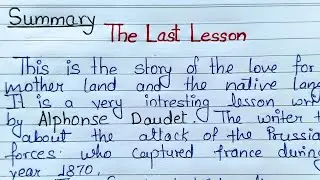 Summary
The Last Lesson
This is the story of the love for
mother land and the native lan
It is a very intresting lesson wri
by Alphonse Daudet The writer t
about the attack of the Prussia
forces who captured france during
year 1870.